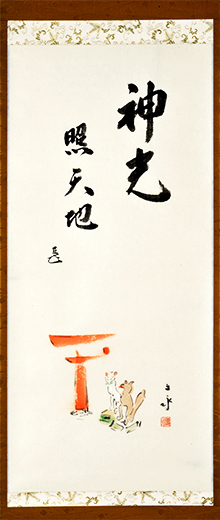 神光
照天地